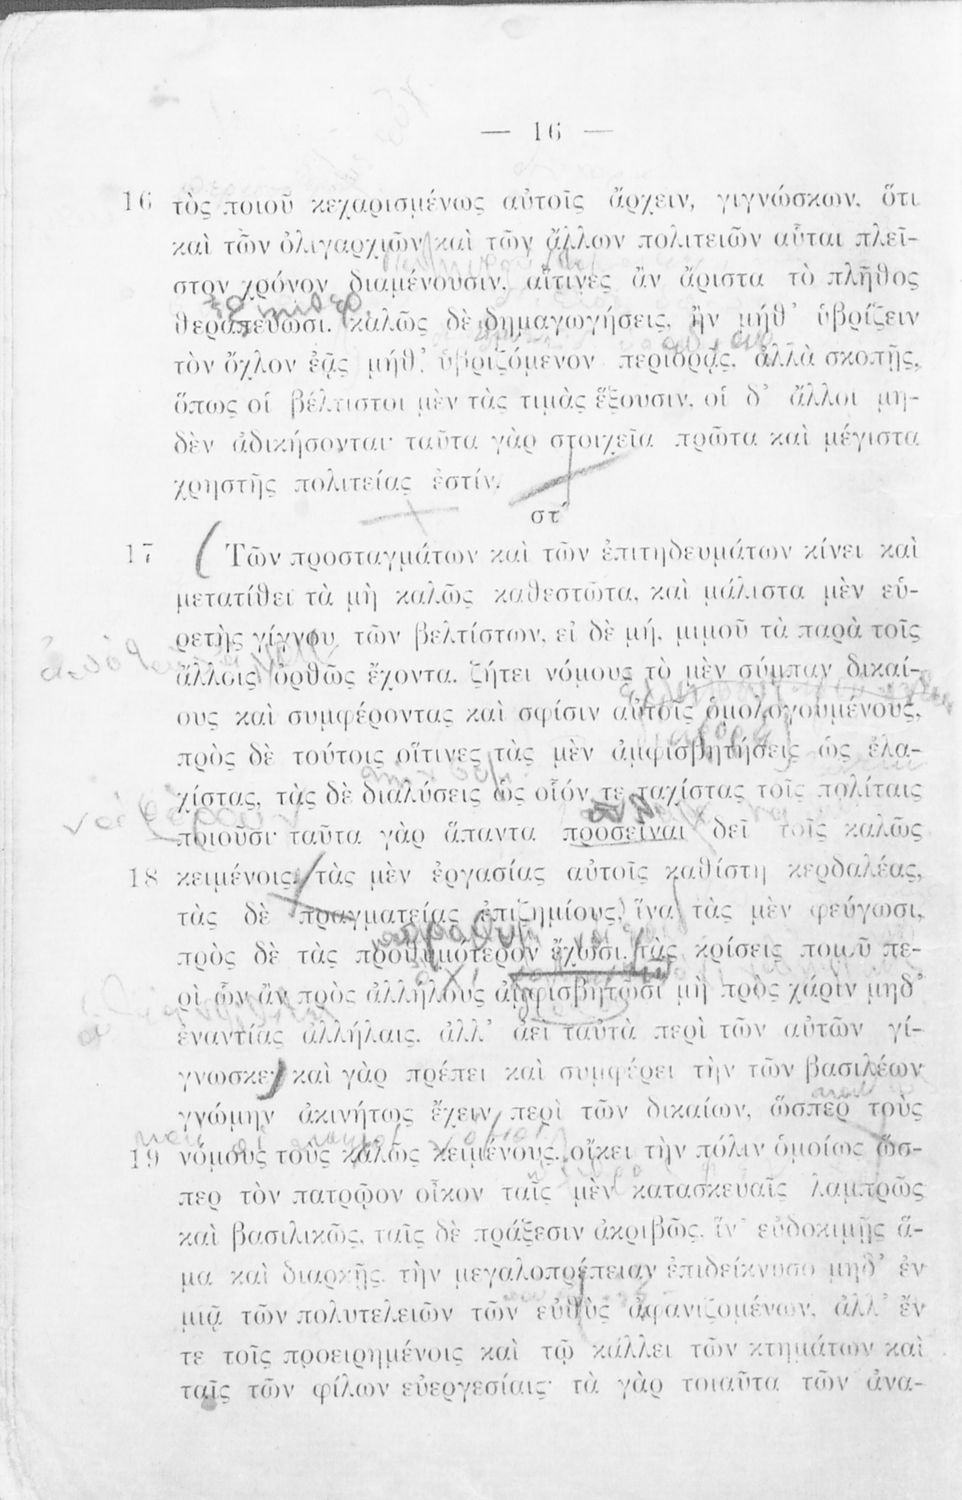 — 16 —
16 τὸς ποιοῦ κεχαρισμένως αὐτοῖς ἄρχειν, γιγνώσκων, ὅτι
καὶ τῶν ὀλιγαρχιῶν καὶ τῶν ἄλλων πολιτειῶν αὗται πλεῖ-
στον χρόνον διαμένουσιν, αἵτινες ἂν ἄριστα τὸ πλῆθος
θεραπεύωσι. καλῶς δὲ δημαγωγήσεις, ἢν μήθ’ ὑβρίζειν
τὸν ὄχλον ἐᾷς μήθ’ ὑβριζόμενον περιορᾷς, ἀλλὰ σκοπῇς,
ὅπως οἱ βέλτιστοι μὲν τὰς τιμὰς ἕξουσιν, οἱ δ’ ἄλλοι μη-
δὲν ἀδικήσονται· ταῦτα γὰρ στοιχεῖα πρῶτα καὶ μέγιστα
χρηστῆς πολιτείας ἐστίν.
στ΄
17 Τῶν προσταγμάτων καὶ τῶν ἐπιτηδευμάτων κίνει καὶ
μετατίθει τὰ μὴ καλῶς καθεστῶτα, καὶ μάλιστα μὲν εὑ-
ρετὴς γίγνου τῶν βελτίστων, εἰ δὲ μή, μιμοῦ τὰ παρὰ τοῖς
ἄλλοις ὀρθῶς ἔχοντα. ζήτει νόμους τὸ μὲν σύμπαν δικαί-
ους καὶ συμφέροντας καὶ σφίσιν αὐτοῖς ὁμολογουμένους,
πρὸς δὲ τούτοις οἵτινες τὰς μὲν ἀμφισβητήσεις ὡς ἐλα-
χίστας, τὰς δὲ διαλύσεις ὡς οἷόν τε ταχίστας τοῖς πολίταις
ποιοῦσι· ταῦτα γὰρ ἅπαντα προσεῖναι δεῖ τοῖς καλῶς
18 κειμένοις. τὰς μὲν ἐργασίας αὐτοῖς καθίστη κερδαλέας,
τὰς δὲ πραγματείας ἐπιζημίους, ἵνα τὰς μὲν φεύγωσι,
πρὸς δὲ τὰς προθυμότερον ἔχωσι. τὰς κρίσεις ποιοῦ πε-
ρὶ ὧν ἂν πρὸς ἀλλήλους ἀμφισβητῶσι μὴ πρὸς χάριν μηδ’
ἐναντίας ἀλλήλαις, ἀλλ’ ἀεὶ ταὐτὰ περὶ τῶν αὐτῶν γί-
γνωσκε· καὶ γὰρ πρέπει καὶ συμφέρει τὴν τῶν βασιλέων
γνώμην ἀκινήτως ἔχειν περὶ τῶν δικαίων, ὥσπερ τοὺς
19 νόμους τοὺς καλῶς κειμένους. οἴκει τὴν πόλιν ὁμοίως ὥσ-
περ τὸν πατρῷον οἶκον ταῖς μὲν κατασκευαῖς λαμπρῶς
καὶ βασιλικῶς, ταῖς δὲ πράξεσιν ἀκριβῶς, ἵν’ εὐδοκιμῇς ἅ-
μα καὶ διαρκῇς. τὴν μεγαλοπρέπειαν ἐπιδείκνυσο μηδ’ ἐν
μιᾷ τῶν πολυτελειῶν τῶν εὐθὺς ἀφανιζομένων, ἀλλ’ ἔν
τε τοῖς προειρημένοις καὶ τῷ κάλλει τῶν κτημάτων καὶ
ταῖς τῶν φίλων εὐεργεσίαις· τὰ γὰρ τοιαῦτα τῶν ἀνα-